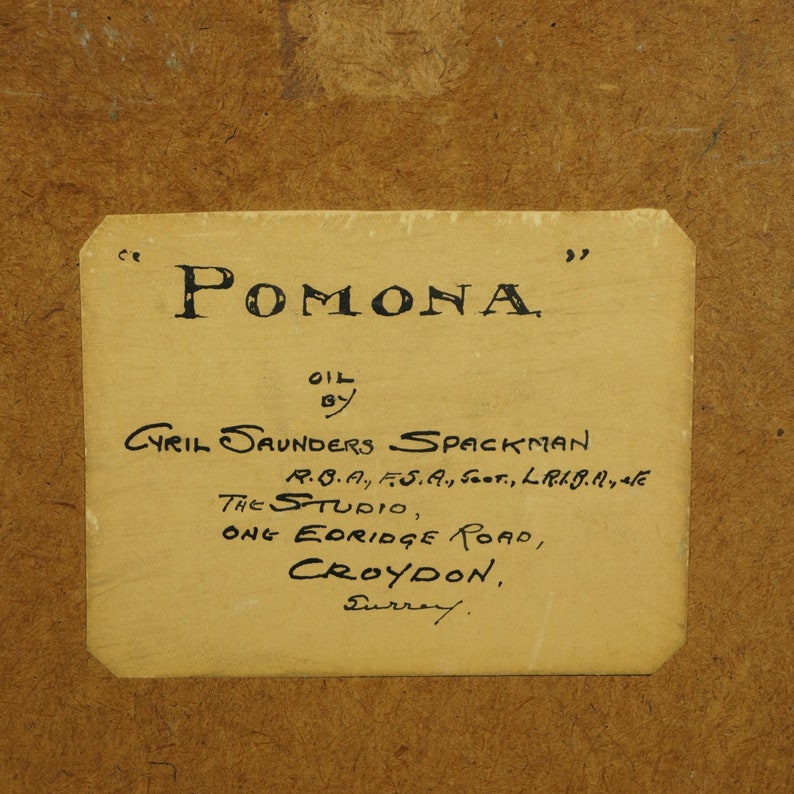 " POMONA "
OIL
BY
CYRIL SAUNDERS SPACKMAN
R.B.A., F.S.A., Scot., L.R.I.B.A., etc
THE STUDIO,
ONE EDRIDGE ROAD,
CROYDON,
Surrey.